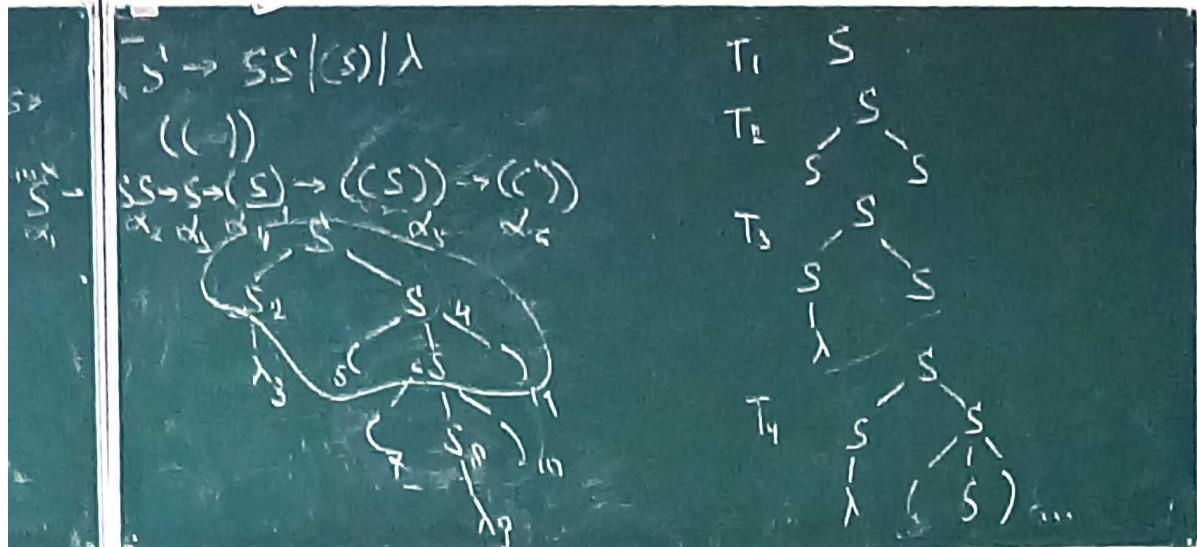 S → SS|(S)|λ
(( ))
S → SS → S → (S) → ((S)) → (( ))
α₁ α₂ α₃ α₄ α₅ α₆
S
S 2 S 4
λ 3 5 ( 6 S ) 11
( 7 S ) 10
λ 9
T₁ S
T₂ S
S S
T₃ S
S S
λ
T₄ S
S S
λ ( S ) ...